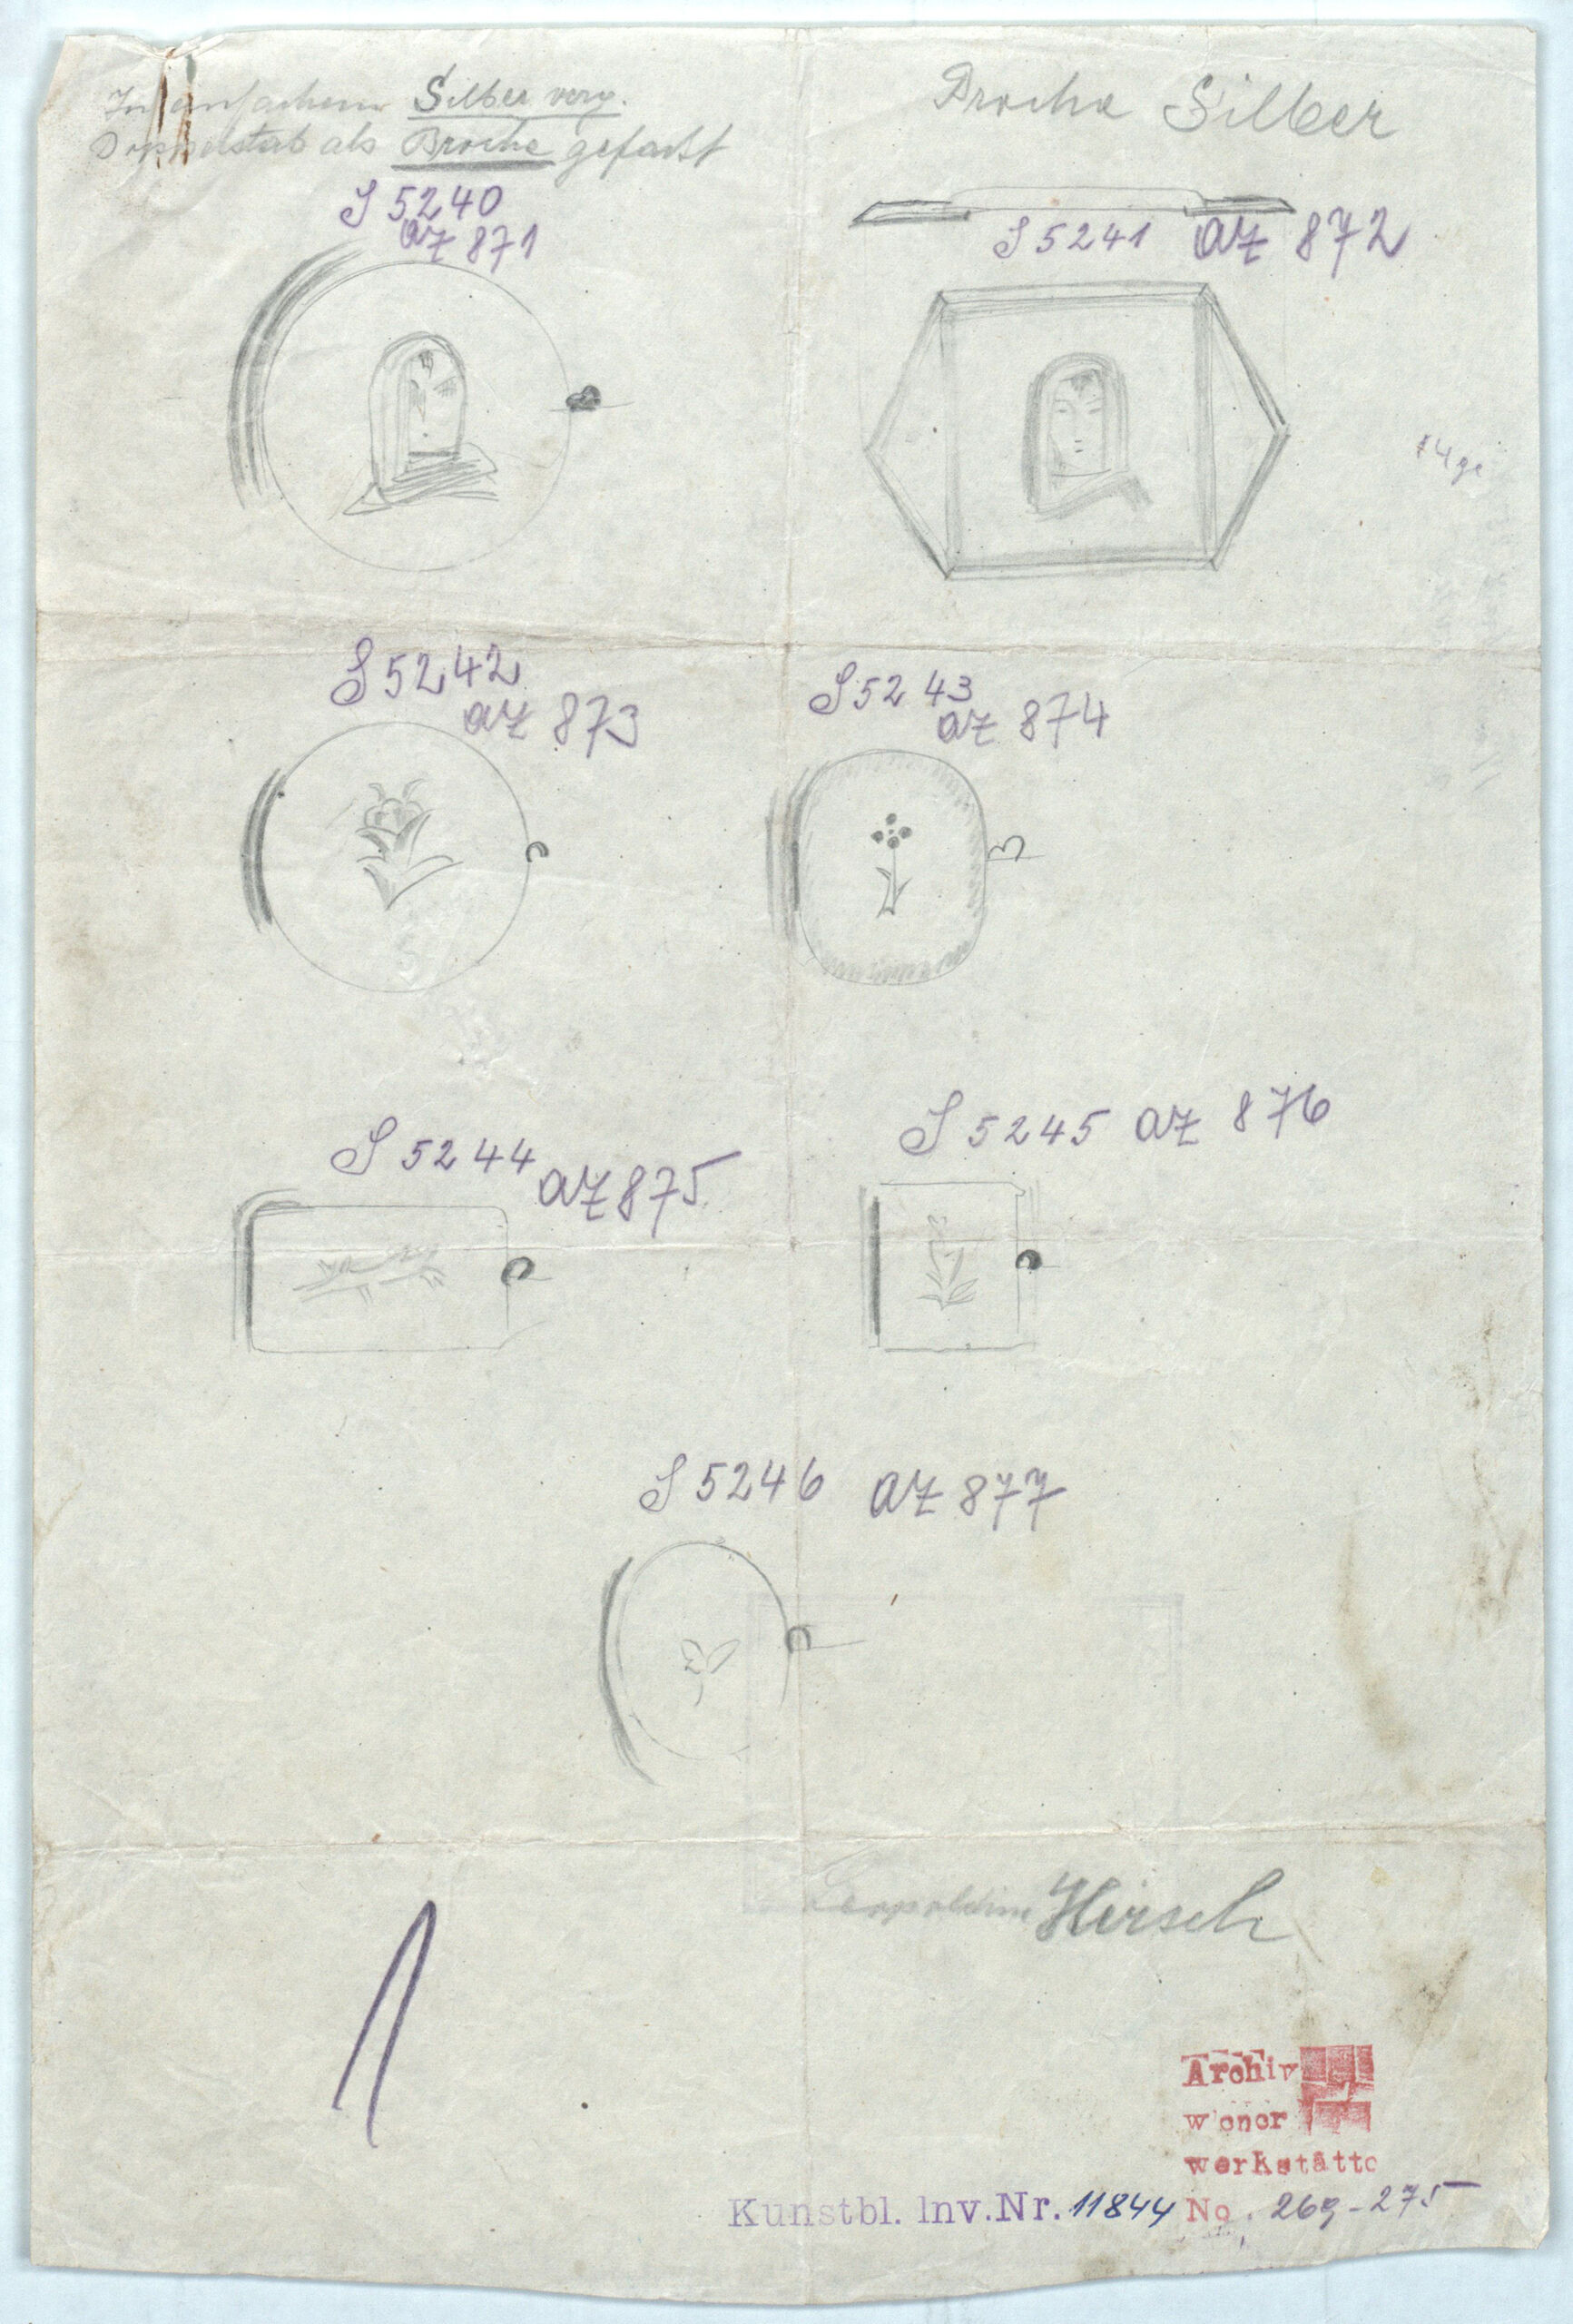 In einfachem Silber verg.
Doppelstab als Broche gefasst
Broche Silber
S 5240
az 871
S 5241 az 872
S 5242
az 873
S 5243
az 874
S 5244
az 875
S 5245 az 876
S 5246 az 877
Leopoldine Hirsch
Archiv
wiener
werkstätte
Kunstbl. Inv.Nr. 11844 No. 269-275